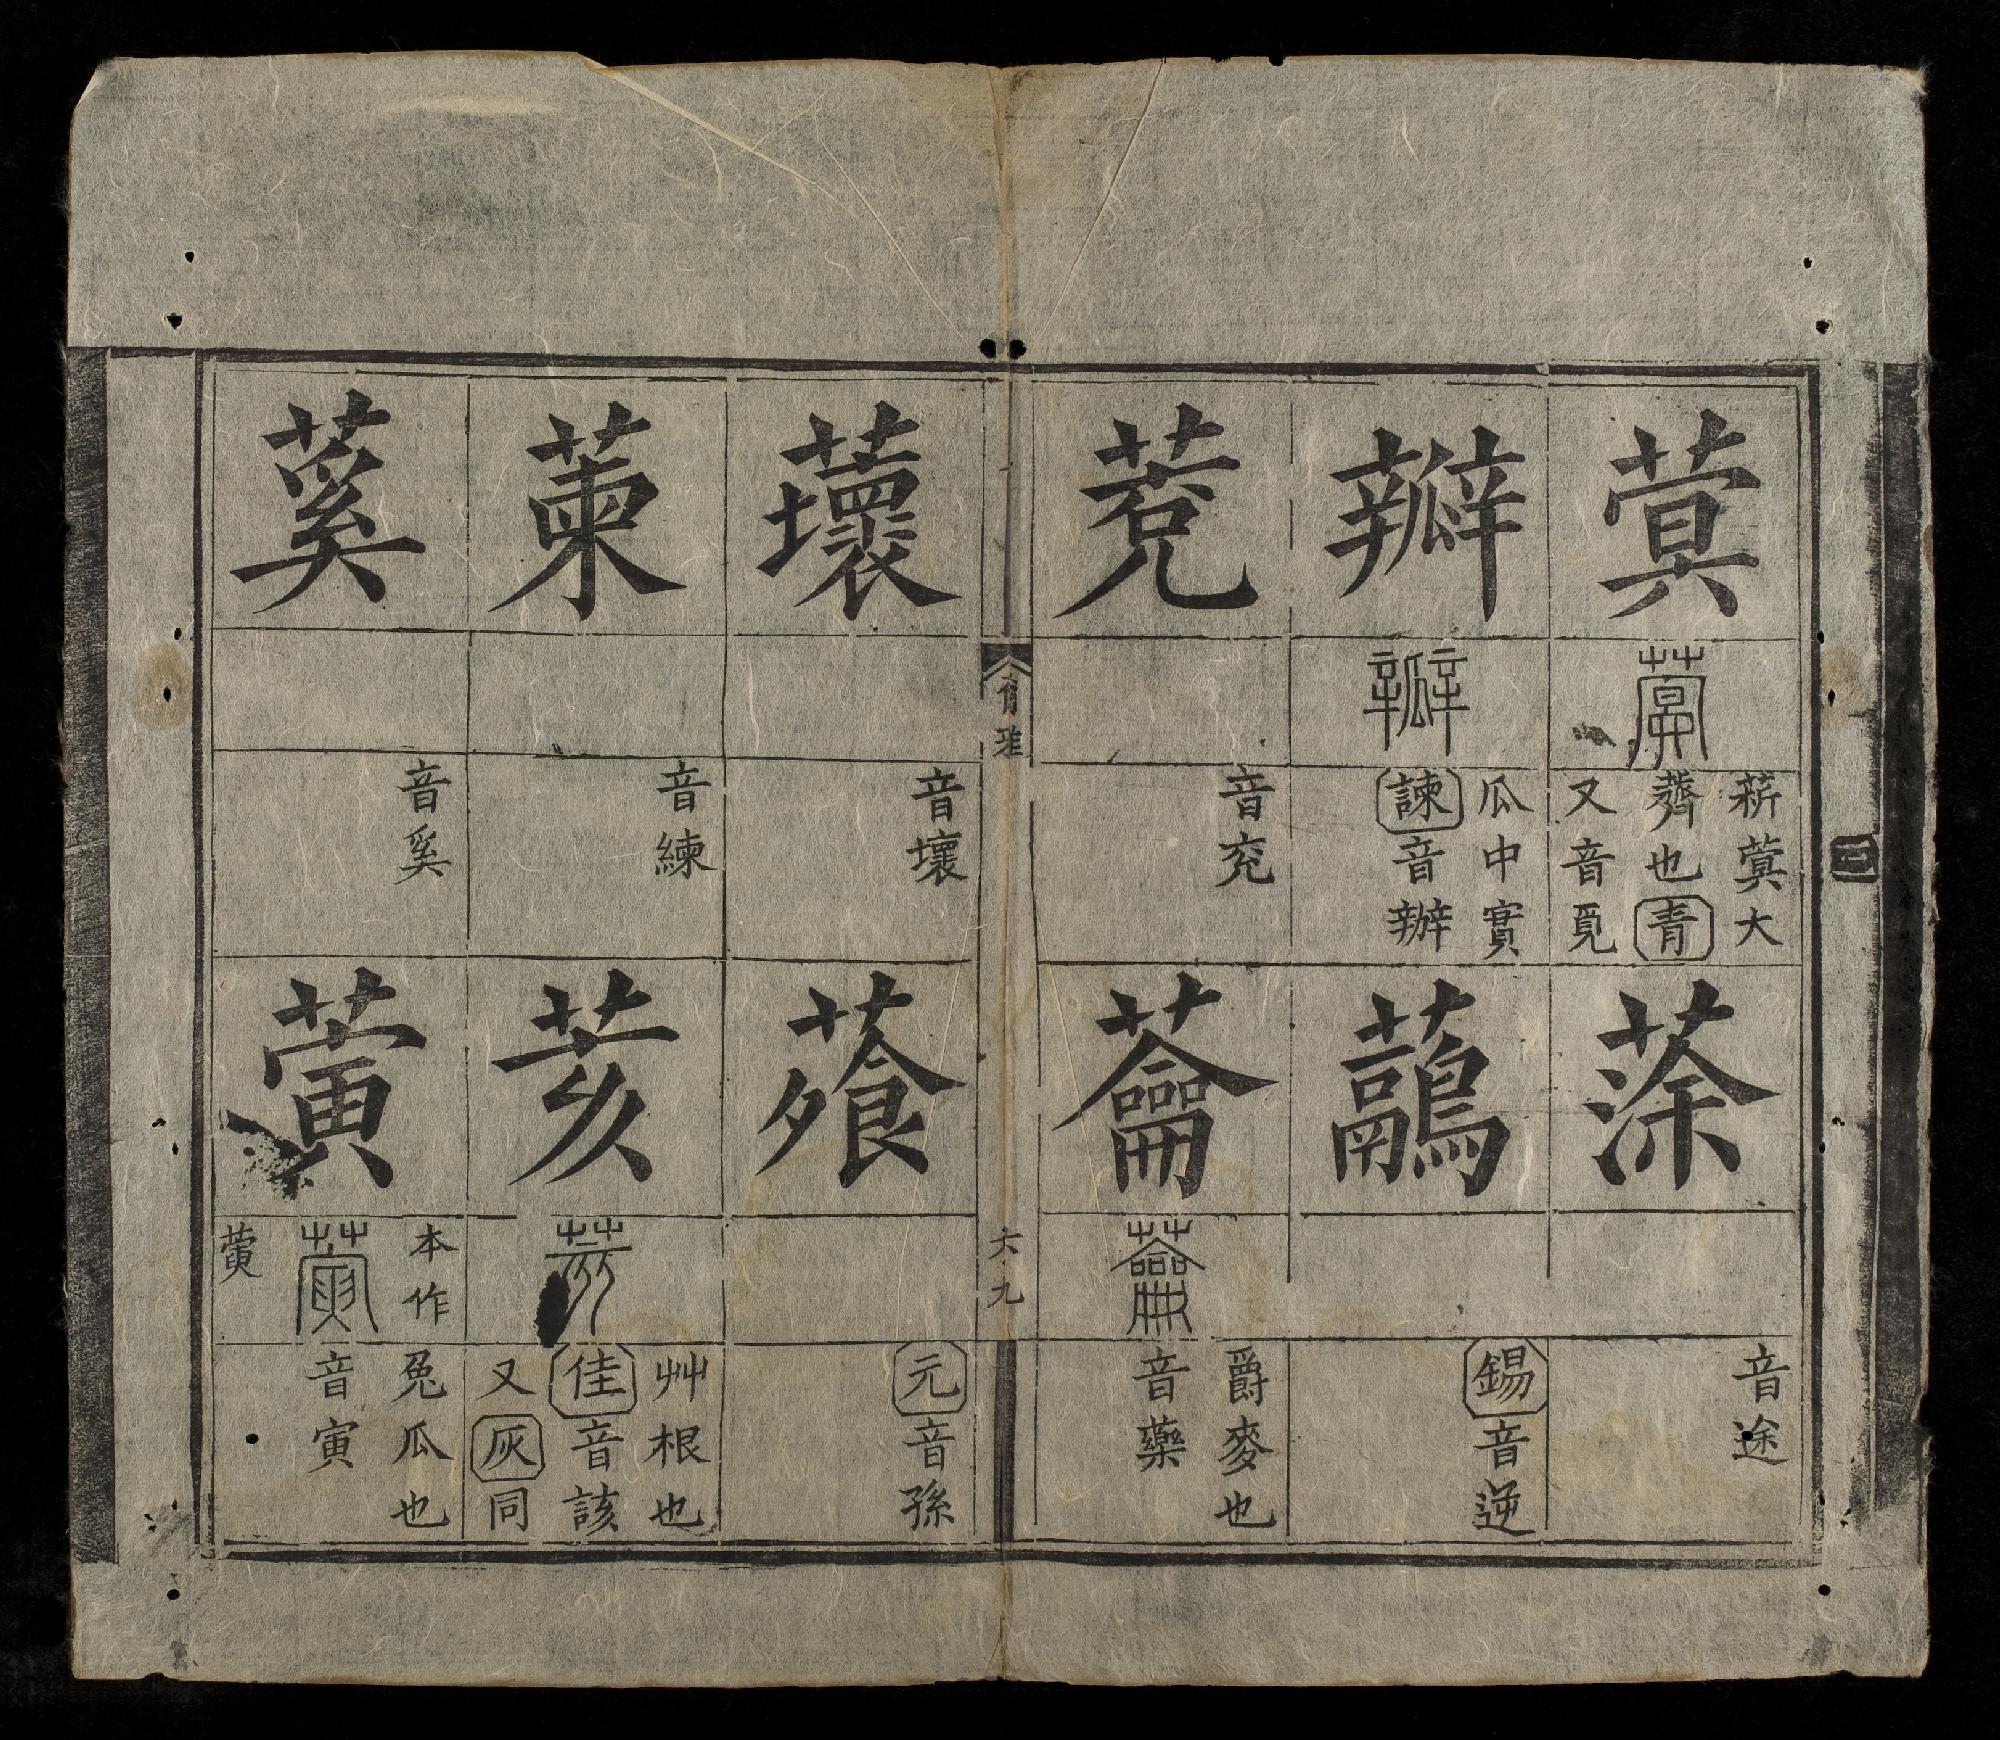 蓂
薪蓂大
薺也青
又音覓
蒤
音途
瓣
瓜中實
諫音辦
虉
錫音逆
茺
音充
蘥
爵麥也
音藥
爾雅
六九
蘾
音壞
薞
元音孫
萰
音練
荄
艸根也
佳音該
又灰同
蒵
音奚
本作
䔟
菟瓜也
音寅